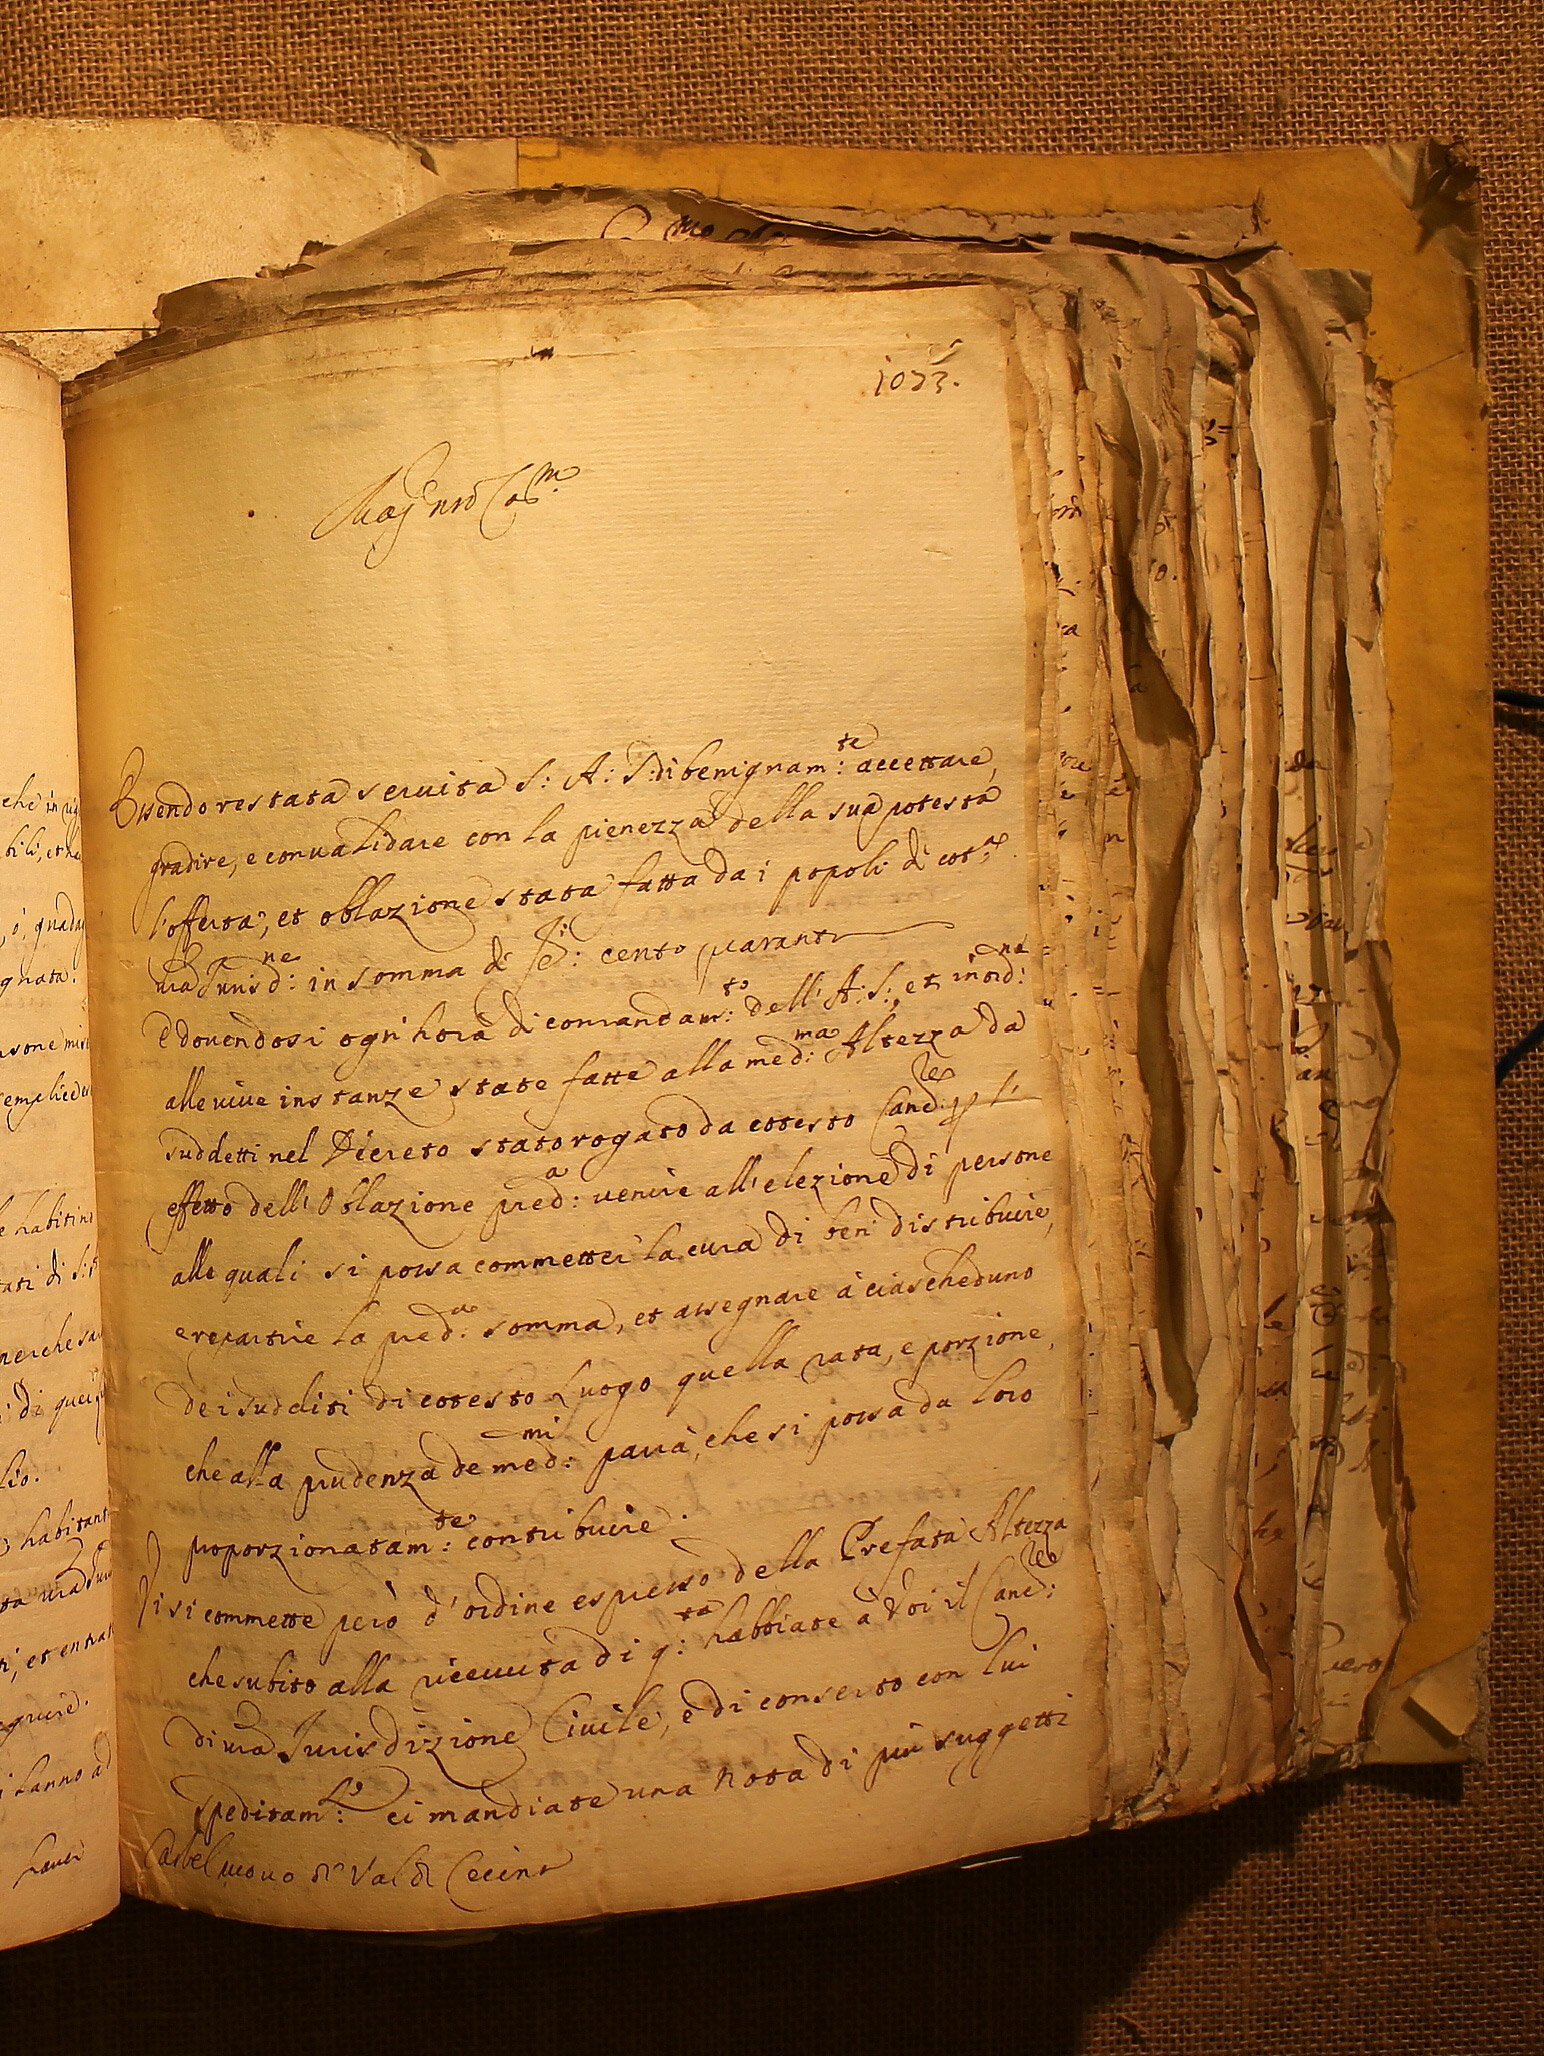 1073.
Mag.co nro Car.mo
Essendo restata servita S: A: S: di benignam:te accettare,
gradire, e convalidare con la pienezza della sua potestà
l'offerta, et oblazione stata fatta da i popoli di cot.a
vra Jurisd:ne in somma di : cento quaranta
e dovendosi ogn'hora di comandam:to dell'A: S:, et in ord:ne
alle vive instanze state fatte alla med:ma Altezza da
suddetti nel Decreto stato rogato da cotesto Canc:re p l'
effetto dell'Oblazione pred:a venire all'elezione di persone
alle quali si possa commetter la cura di ben distribuire,
e repartire la pred:a somma, et assegnare à ciascheduno
de i sudditi di cotesto Luogo quella rata, e porzione,
che alla prudenza de med:mi parrà, che si possa da loro
proporzionatam:te contribuire.
Vi si commette però d'ordine espresso della Prefata Altezza
che subito alla ricevuta di q:ta habbiate à Voi il Canc:re
di vra Jurisdizione Civile, e di conserto con lui
speditam:te ci mandiate una Nota di più suggetti
Castelnuovo di Val di Cecina